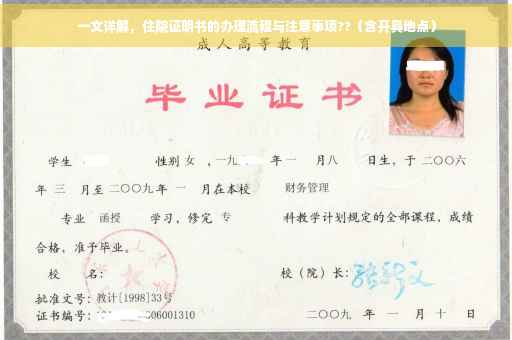 一文详解，住院证明书的办理流程与注意事项??（含开具地点）
成人高等教育
毕业证书
学生 性别 女 ，一九 年一 月八 日生，于二〇〇六
年 三 月至二〇〇九年 一 月在本校 财务管理
专业 函授 学习，修完 专 科教学计划规定的全部课程，成绩
合格，准予毕业。
校 名： 校（院）长：
批准文号：教计[1998]33号
证书编号： 06001310 二〇〇九 年 一 月 十 日